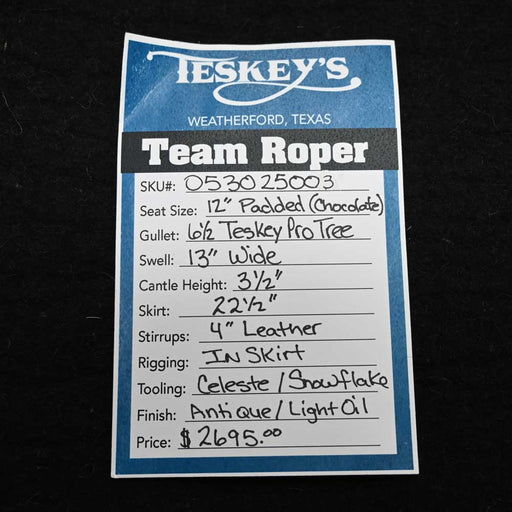 TESKEY'S
WEATHERFORD, TEXAS
Team Roper
SKU#: 053025003
Seat Size: 12" Padded (Chocolate)
Gullet: 6½ Teskey Pro Tree
Swell: 13" Wide
Cantle Height: 3½"
Skirt: 22½"
Stirrups: 4" Leather
Rigging: In Skirt
Tooling: Celeste / Snowflake
Finish: Antique / Light Oil
Price: $2695.00